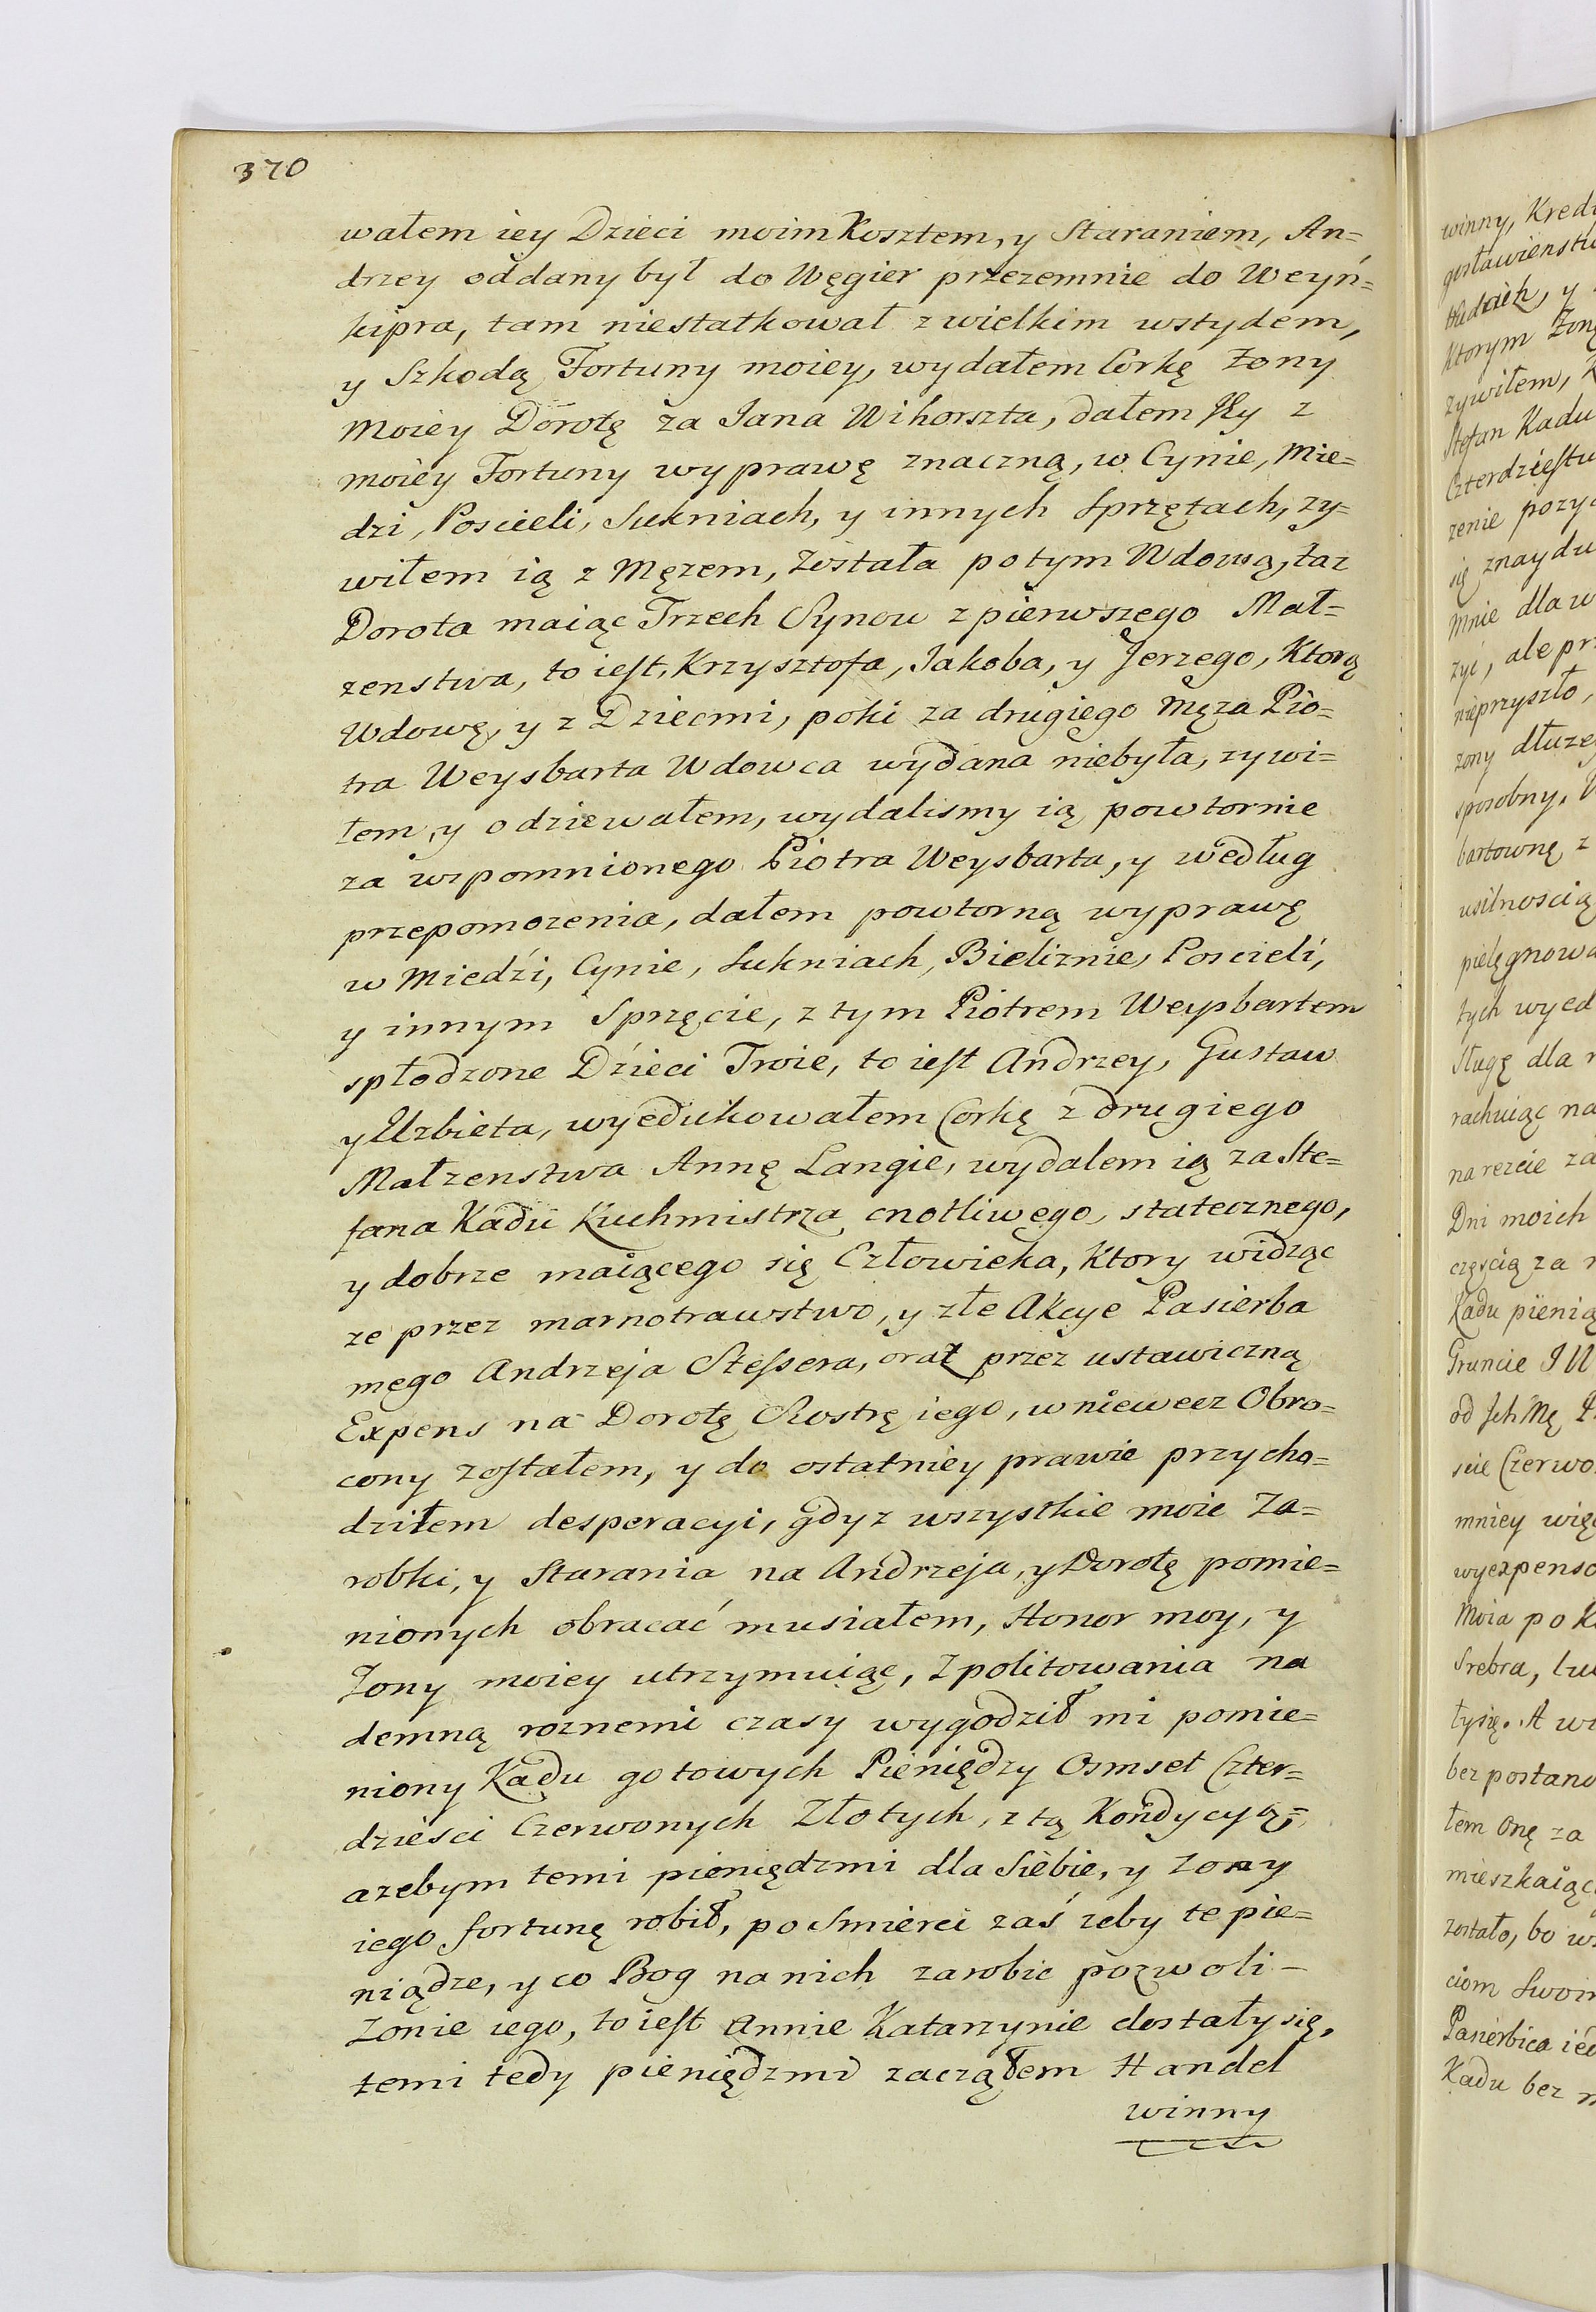 370
wałem iey Dzieci moim Kosztem, y Staraniem, An=
drzey oddany był do Węgier przezemnie do Weyń=
kipra, tam niestatkował z wielkim wstydem,
y Szkodą Fortuny moiey, wydałem Corkę Zony
Moiey Dorotę za Jana Wihorszta, dałem Jey z
moiey Fortuny wyprawę znaczną, w Cynie, Mie=
dzi, Poscieli, Sukniach, y innych Sprzętach, zy=
wiłem ią z Męzem, Została potym Wdową, taz
Dorota maiąc Trzech Synow z pierwszego Mał=
zenstwa, to iest, Krzysztofa, Jakoba, y Jerzego, Ktorą
Wdowę, y z Dziecmi, poki za drugiego Męza Pio=
tra Weysbarta Wdowca wydana niebyła, zywi=
łem, y odziewałem, wydalismy ią powtornie
za wspomnionego Piotra Weysbarta, y według
przepomozenia, dałem powtorną wyprawę
w Miedzi, Cynie, Sukniach, Bieliznie, Poscieli,
y innym Sprzęcie, z tym Piotrem Weysbartem
spłodzone Dzieci Troie, to iest Andrzey, Gustaw
y Elzbieta, wyedukowałem Corkę z drugiego
Małzenstwa Annę Langie, wydałem ią za Ste=
fana Kadu Kuchmistrza cnotliwego, statecznego,
y dobrze maiącego się Człowieka, Ktory widząc
ze przez marnotrawstwo, y złe Akcye Pasierba
mego Andrzeja Stessera, oraz przez ustawiczną
Expens na Dorotę Siostrę iego, w niewecz Obro=
cony zostałem, y do ostatniey prawie przycho=
dziłem desperacyi, gdyz wszystkie moie Za=
robki, y Starania na Andrzeja, y Dorotę pomie=
nionych obracać musiałem, Honor moy, y
Zony moiey utrzymuiąc, Z politowania na
demną roznemi czasy wygodził mi pomie=
niony Kadu gotowych Pieniędzy Osmset Czter=
dziesci Czerwonych Złotych, z tą Kondycyą,=
azebym temi pieniędzmi dla Siebie, y Zony
iego fortunę robił, po Smierci zaś zeby te pie=
niądze, y co Bog na nich zarobic pozwoli -
Zonie iego, to iest Annie Katarzynie dostały się,
temi tedy pieniędzmi zacząłem Handel
winny
winny, Kred
ktorym Zon
zywiłem, K
Stefan Kadu
Czterdziestu
zenie pozy
się znaydu
Mnie dla w
zyć, ale pr
nieprzyszło,
zony dłuze
sposobny, W
bartownę z
usilnoscią
pielęgnowa
tych wyed
Sługę dla
rachuiąc na
na rezcie za
Dni moich
częścią za
Kadu pienią
Gruncie J W
od Jch Mę P
scie Czerwo
mniey więc
wyexpenso
Moia po K
Srebra, lu
tysię. A w
bez postano
łem onę za
mieszkaiąc
zostało, bo w
ciom Swoi
Pasierbica ie
Kadu bez